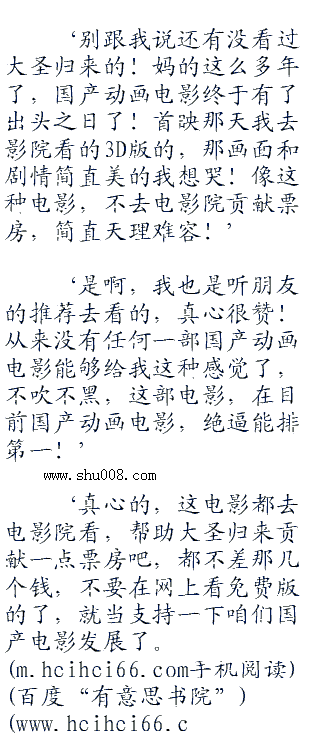 ‘别跟我说还有没看过
大圣归来的！妈的这么多年
了，国产动画电影终于有了
出头之日了！首映那天我去
影院看的3D版的，那画面和
剧情简直美的我想哭！像这
种电影，不去电影院贡献票
房，简直天理难容！’
‘是啊，我也是听朋友
的推荐去看的，真心很赞！
从来没有任何一部国产动画
电影能够给我这种感觉了，
不吹不黑，这部电影，在目
前国产动画电影，绝逼能排
第一！’
www.shu008.com
‘真心的，这电影都去
电影院看，帮助大圣归来贡
献一点票房吧，都不差那几
个钱，不要在网上看免费版
的了，就当支持一下咱们国
产电影发展了。
(m.hcihci66.com手机阅读)
(百度“有意思书院”)
(www.hcihci66.c